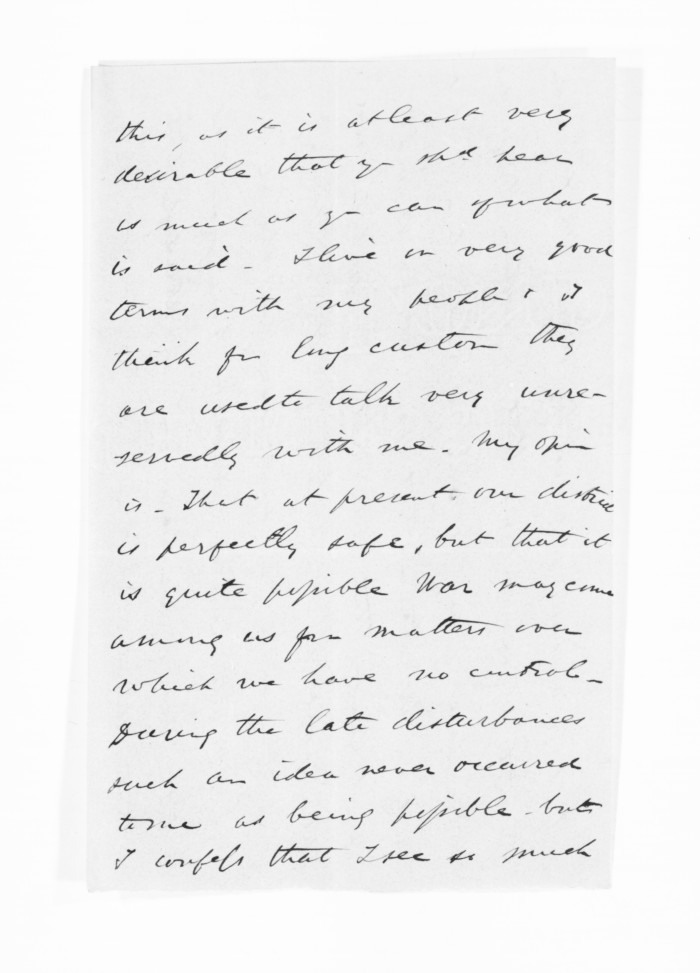 this, as it is at least very
desirable that yo shd hear
as much as yo can of what
is said - I live on very good
terms with my people & I
think fm long custom they
are used to talk very unre-
servedly with me. My opin
is - That at present our district
is perfectly safe, but that it
is quite possible War may come
among us fm matters over
which we have no control -
During the late disturbances
such an idea never occurred
to me as being possible - but
I confess that I see so much